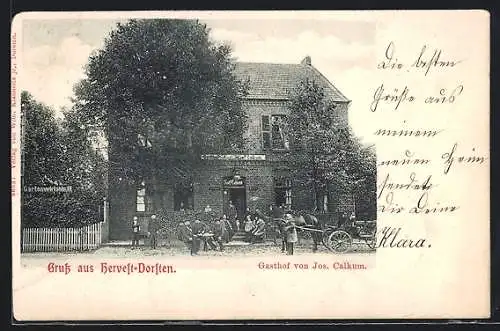 Gartenwirtschaft
Gruß aus Hervest-Dorsten.
Gasthof von Jos. Calkum.
Die besten
Grüße aus
meinem
neuen Heim
sendet
Dir Deine
Klara.